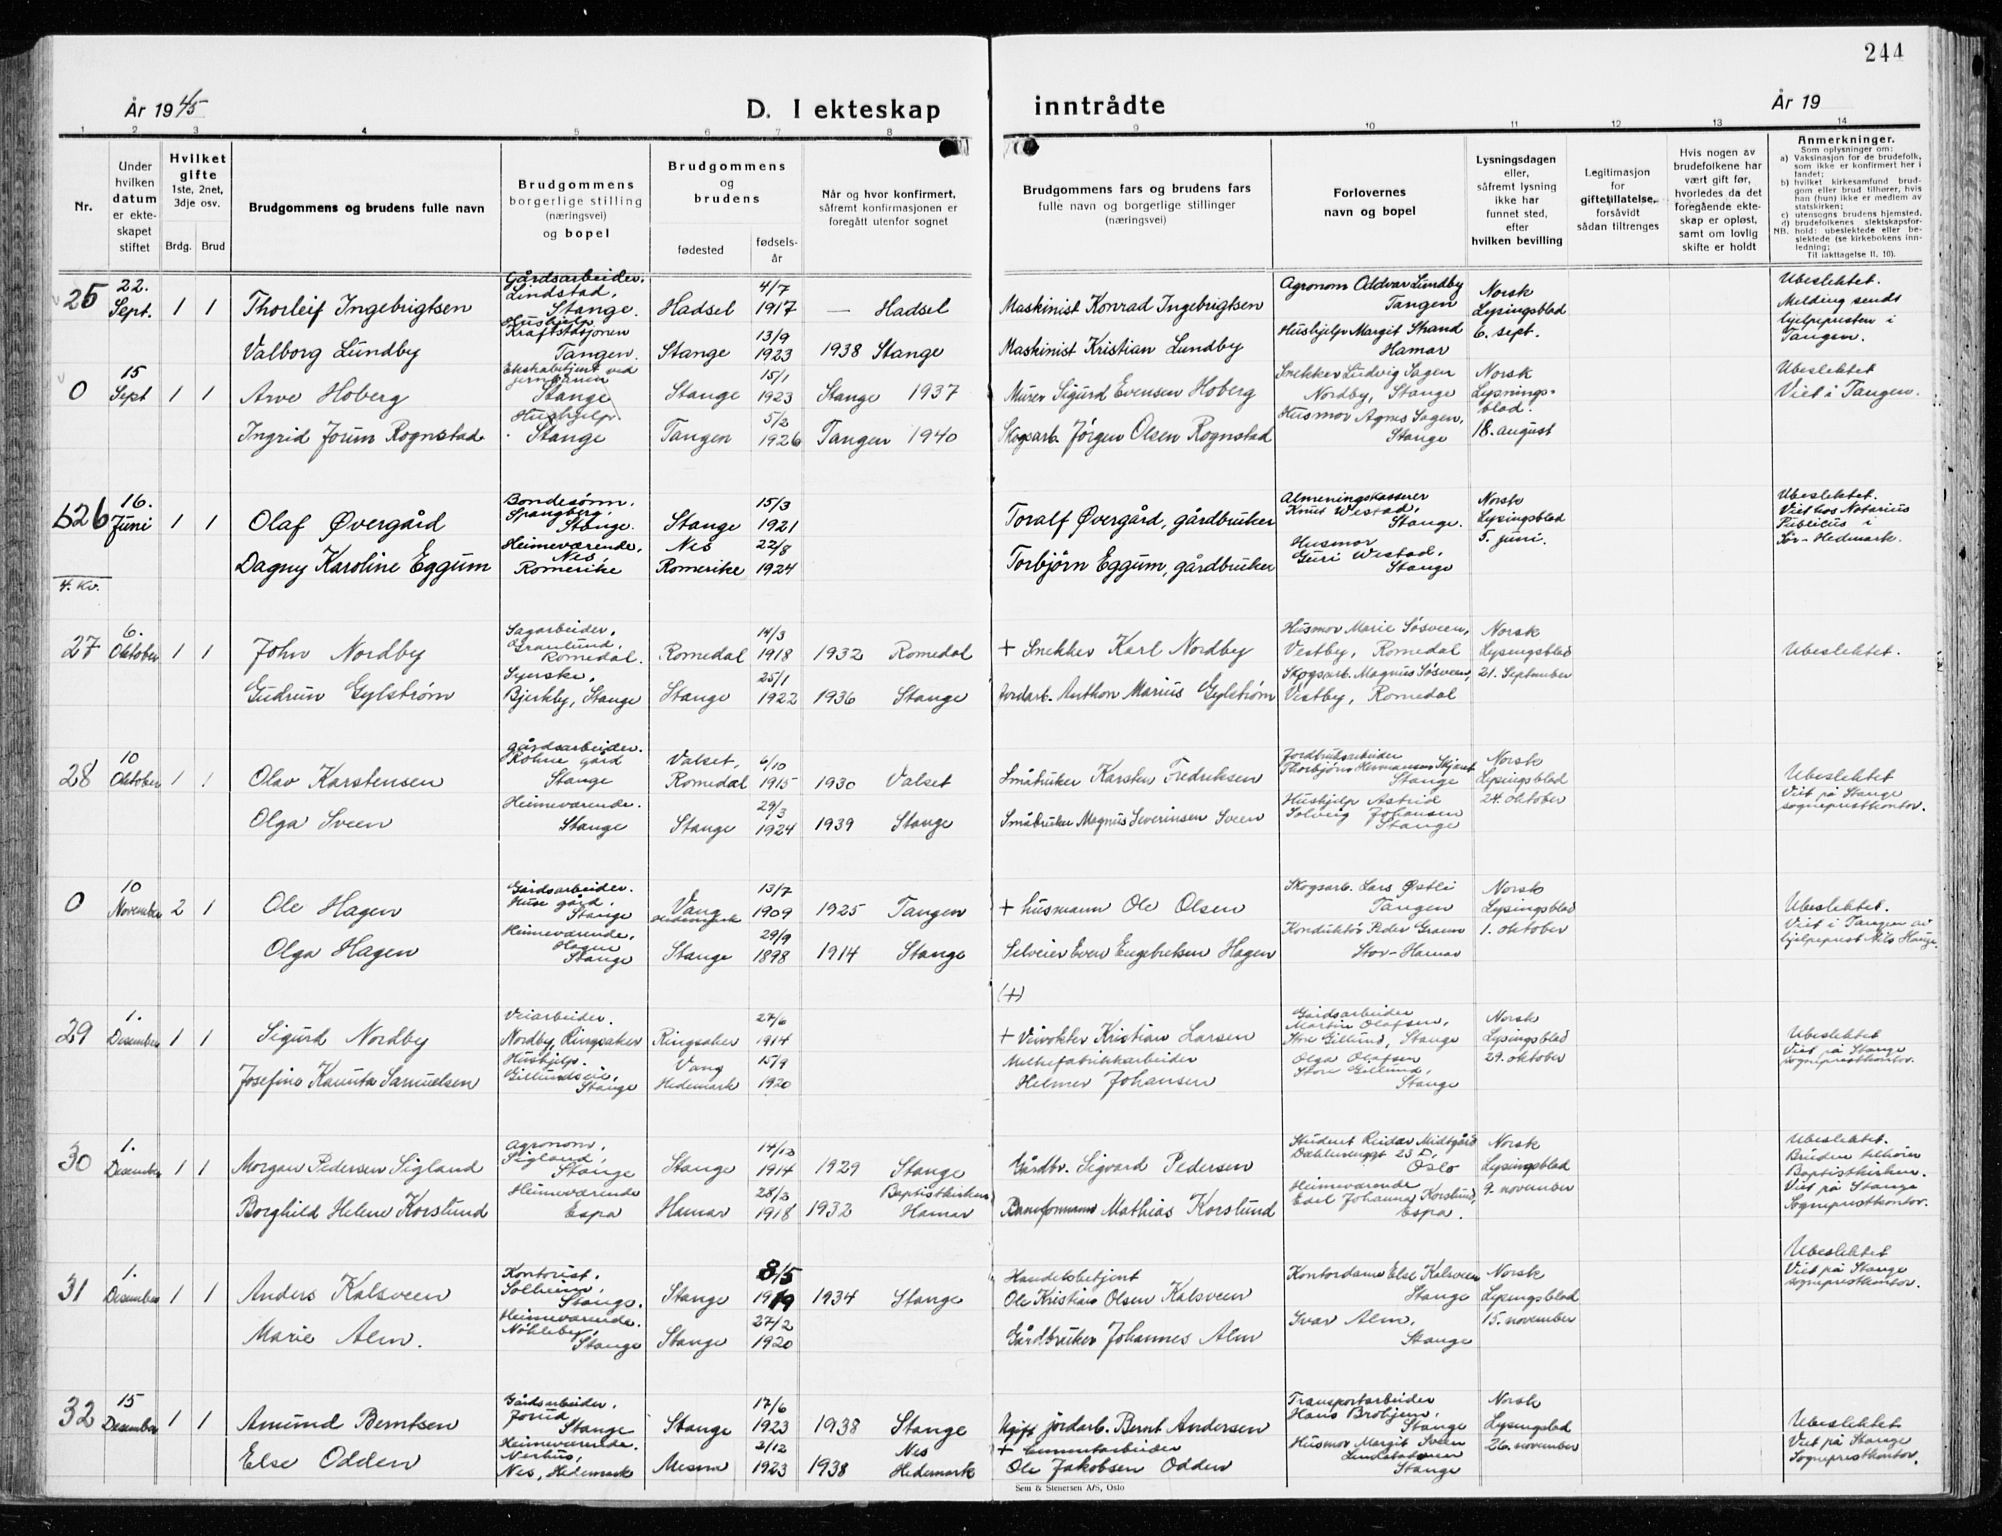 244
År 1945
D. I ekteskap inntrådte
År 19
1 2 3 4 5 6 7 8 9 10 11 12 13 14
Nr.
Under hvilken datum er ekteskapet stiftet
Hvilket gifte 1ste, 2net, 3dje osv.
Brdg. Brud
Brudgommens og brudens fulle navn
Brudgommens borgerlige stilling (næringsvei) og bopel
Brudgommens og brudens
fødested
fødselsår
Når og hvor konfirmert, såfremt konfirmasjonen er foregått utenfor sognet
Brudgommens fars og brudens fars fulle navn og borgerlige stillinger (næringsvei)
Forlovernes navn og bopel
Lysningsdagen eller, såfremt lysning ikke har funnet sted, efter hvilken bevilling
Legitimasjon for giftetillatelse, forsåvidt sådan tiltrenges
Hvis nogen av brudefolkene har vært gift før, hvorledes da det foregående ekteskap er opløst, samt om lovlig skifte er holdt
Anmerkninger.
Som oplysninger om:
a) Vaksinasjon for de brudefolk, som ikke er konfirmert her i landet;
b) hvilket kirkesamfund brudgom eller brud tilhører, hvis han (hun) ikke er medlem av statskirken;
c) utensogns brudens hjemsted,
d) brudefolkenes slektskapsforhold: ubeslektede eller beslektede (se kirkebokens innledning;
NB.
Til iakttagelse II, 10).
25 22. Sept. 1 1 Thorleif Ingebrigtsen Gårdsarbeider, Lindstad, Stange. Hadsel 4/7 1917 — Hadsel Maskinist Konrad Ingebrigtsen Agronom Oddvar Lundby Tangen Norsk Lysingsblad 6. sept. Ubeslektet. Melding sends hjelpepresten i Tangen.
Valborg Lundby Hushjelp Kraftstasjonen Tangen. Stange 13/9 1923 1938 Stange Maskinist Kristian Lundby Hushjelp Margit Strand Hamar
0 15 Sept 1 1 Arve Hoberg Ekstrabetjent ved jernbanen Stange Stange 15/1 1923 Stange 1937 Murer Sigurd Evensen Hoberg Snekker Ludvig Sagen Nordby, Stange Norsk Lysningsblad. 18. august Ubeslektet Viet i Tangen.
Ingrid Jorun Rognstad Hushjelp. Stange Tangen 5/2 1926 Tangen 1940 Skogsarb. Jörgen Olsen Rognstad Husmor Agnes Sagen, Stange
626 16. Juni 1 1 Olaf Øvergård Bondesønn, Spangberg, Stange. Stange 15/3 1921 Toralf Øvergård, gårdbruker Almeningskasserer Knut Westad, Stange. Norsk Lysingsblad 5. juni. Ubeslektet. Viet hos Notarius Publicus i Sør-Hedmark.
Dagny Karoline Eggum Heimeværende, Nes, Romerike Nes Romerike 22/8 1924 Torbjörn Eggum, gårdbruker Husmor Guri Westad, Stange
4. Kv.
27 6. Oktober 1 1 John Nordby Sagarbeider, Granlund, Romedal. Romedal 14/3 1918 1932 Romedal + Snekker Karl Nordby Husmor Marie Søsveen, Vestby, Romedal Norsk Lysingsblad 21. September Ubeslektet.
Gudrun Gylstrøm Syerske, Bjerkby, Stange Stange 25/1 1922 1936 Stange Jordarb. Anthon Marius Gylstrøm Skogsarb. Magnus Søsveen, Vestby, Romedal
28 10 Oktober 1 1 Olav Karstensen Gårdsarbeider. Røhne gård Stange Valset, Romedal 6/10 1915 1930 Valset Småbruker Karsten Fredriksen Jordbruksarbeider Thorbjørn Hermansen Stange Norsk Lysingsblad 24. oktober Ubeslektet Viet på Stange sogneprestkontor.
Olga Sveen Heimeværende. Stange Stange 29/3 1924 1939 Stange Småbruker Magnus Severinsen Sveen Hushjelp Astrid Solveig Johansen Stange
0 10 November 2 1 Ole Hagen Gårdsarbeider. Huse gård, Stange Vang Hedemark 13/7 1909 1925 Tangen + husmann Ole Olsen Skogsarb. Lars Østli Tangen Norsk Lysingsblad 1. oktober Ubeslektet. Viet i Tangen av hjelpeprest Nils Hauge.
Olga Hagen Heimeværende, Hagen Stange Stange 29/9 1898 1914 Stange Selveier Even Engebretsen Hagen (+) Konduktør Peder Gram Stor-Hamar
29 1. Desember 1 1 Sigurd Nordby Veiarbeider. Nordby, Ringsaker Ringsaker 27/6 1914 + Veivokter Kristian Larsen Gårdsarbeider Martin Olafsen, Store Gillund, Stange Norsk Lysingsblad 29. oktober Ubeslektet Viet på Stange sogneprestkontor.
Josefine Kaunta Samuelsen Hushjelp. Gillundseie, Stange Vang Hedemark 15/9 1920 Meltefabrikkarbeider Helmer Johansen Olga Olafsen Store Gillund, Stange
30 1. Desember 1 1 Morgan Pedersen Sigland Agronom, Sigland, Stange Stange 14/10 1914 1929 Stange Gårdbr. Sigvard Pedersen Student Reidar Midtgård Dæhlenenggt 23 D, Oslo Norsk Lysingsblad 9. november Ubeslektet. Bruden tilhører Baptistkirken. Viet på Stange Sogneprestkontor.
Borghild Helene Korslund Heimeværende Espa Hamar 28/3 1918 1932 Baptistkirken Hamar Baneformann Mathias Korslund Heimeværende Edel Johanne Korslund, Espa.
31 1. Desember 1 1 Anders Kalsveen Kontorist, Solheim, Stange. Stange 8/5 1919 1934 Stange Handelsbetjent Ole Kristian Olsen Kalsveen Kontordame Else Kalsveen Stange Norsk Lysingsblad 15. november Ubeslektet Viet på Stange sogneprestkontor.
Marie Alm. Heimeværende. Nøhleby, Stange Stange 27/2 1920 Gårdbruker Johannes Alm Ivar Alm, Stange
32 15 Desember 1 1 Amund Berntsen Gårdsarbeider, Jønid Stange Stange 17/6 1923 1938 Stange Ugift jordarb. Bernt Andersen Transportarbeider Hans Brohjem, Stange Norsk Lysingsblad 26. november Ubeslektet Viet på Stange Sogneprestkontor.
Else Odden Heimeværende. Nerhus, Nes, Hedemark Mesna 2/12 1923 1938 Nes Hedemark + Sementarbeider Ole Jakobsen Odden Husmor Margit Sveen Stange
Sem & Stenersen A/S, Oslo